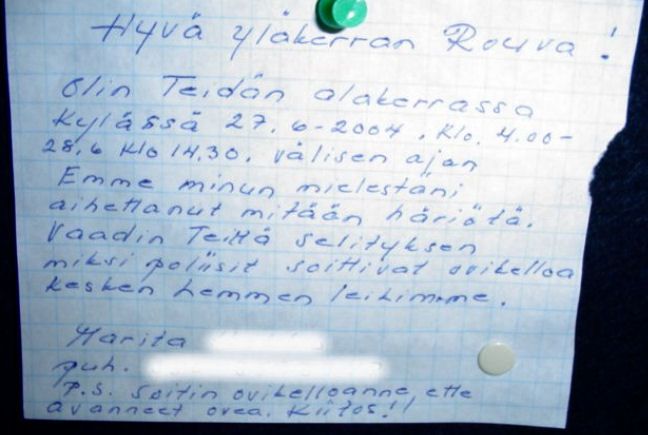 Hyvä yläkerran Rouva!
Olin Teidän alakerrassa
Kylässä 27.6-2004. Klo. 4.00-
28.6 Klo 14.30. välisen ajan
Emme minun mielestäni
aihettanut mitään häriötä.
Vaadin Teiltä selityksen
miksi poliisit soittivat ovikelloa
kesken hemmen leikimme.
Marita
puh.
P.S. Soitin ovikelloanne, ette
avanneet ovea. Kiitos!!